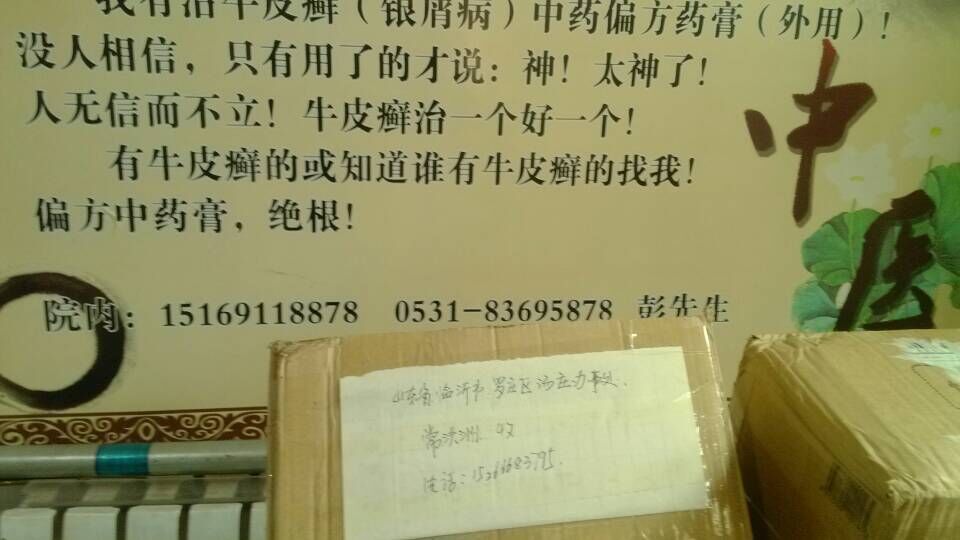 我有治牛皮癣（银屑病）中药偏方药膏（外用）！
没人相信，只有用了的才说：神！太神了！
人无信而不立！牛皮癣治一个好一个！
有牛皮癣的或知道谁有牛皮癣的找我！
偏方中药膏，绝根！
院内：15169118878 0531-83695878 彭先生
中医
山东省临沂市罗庄区汤庄办事处
常洪洲 收
电话：15266683795